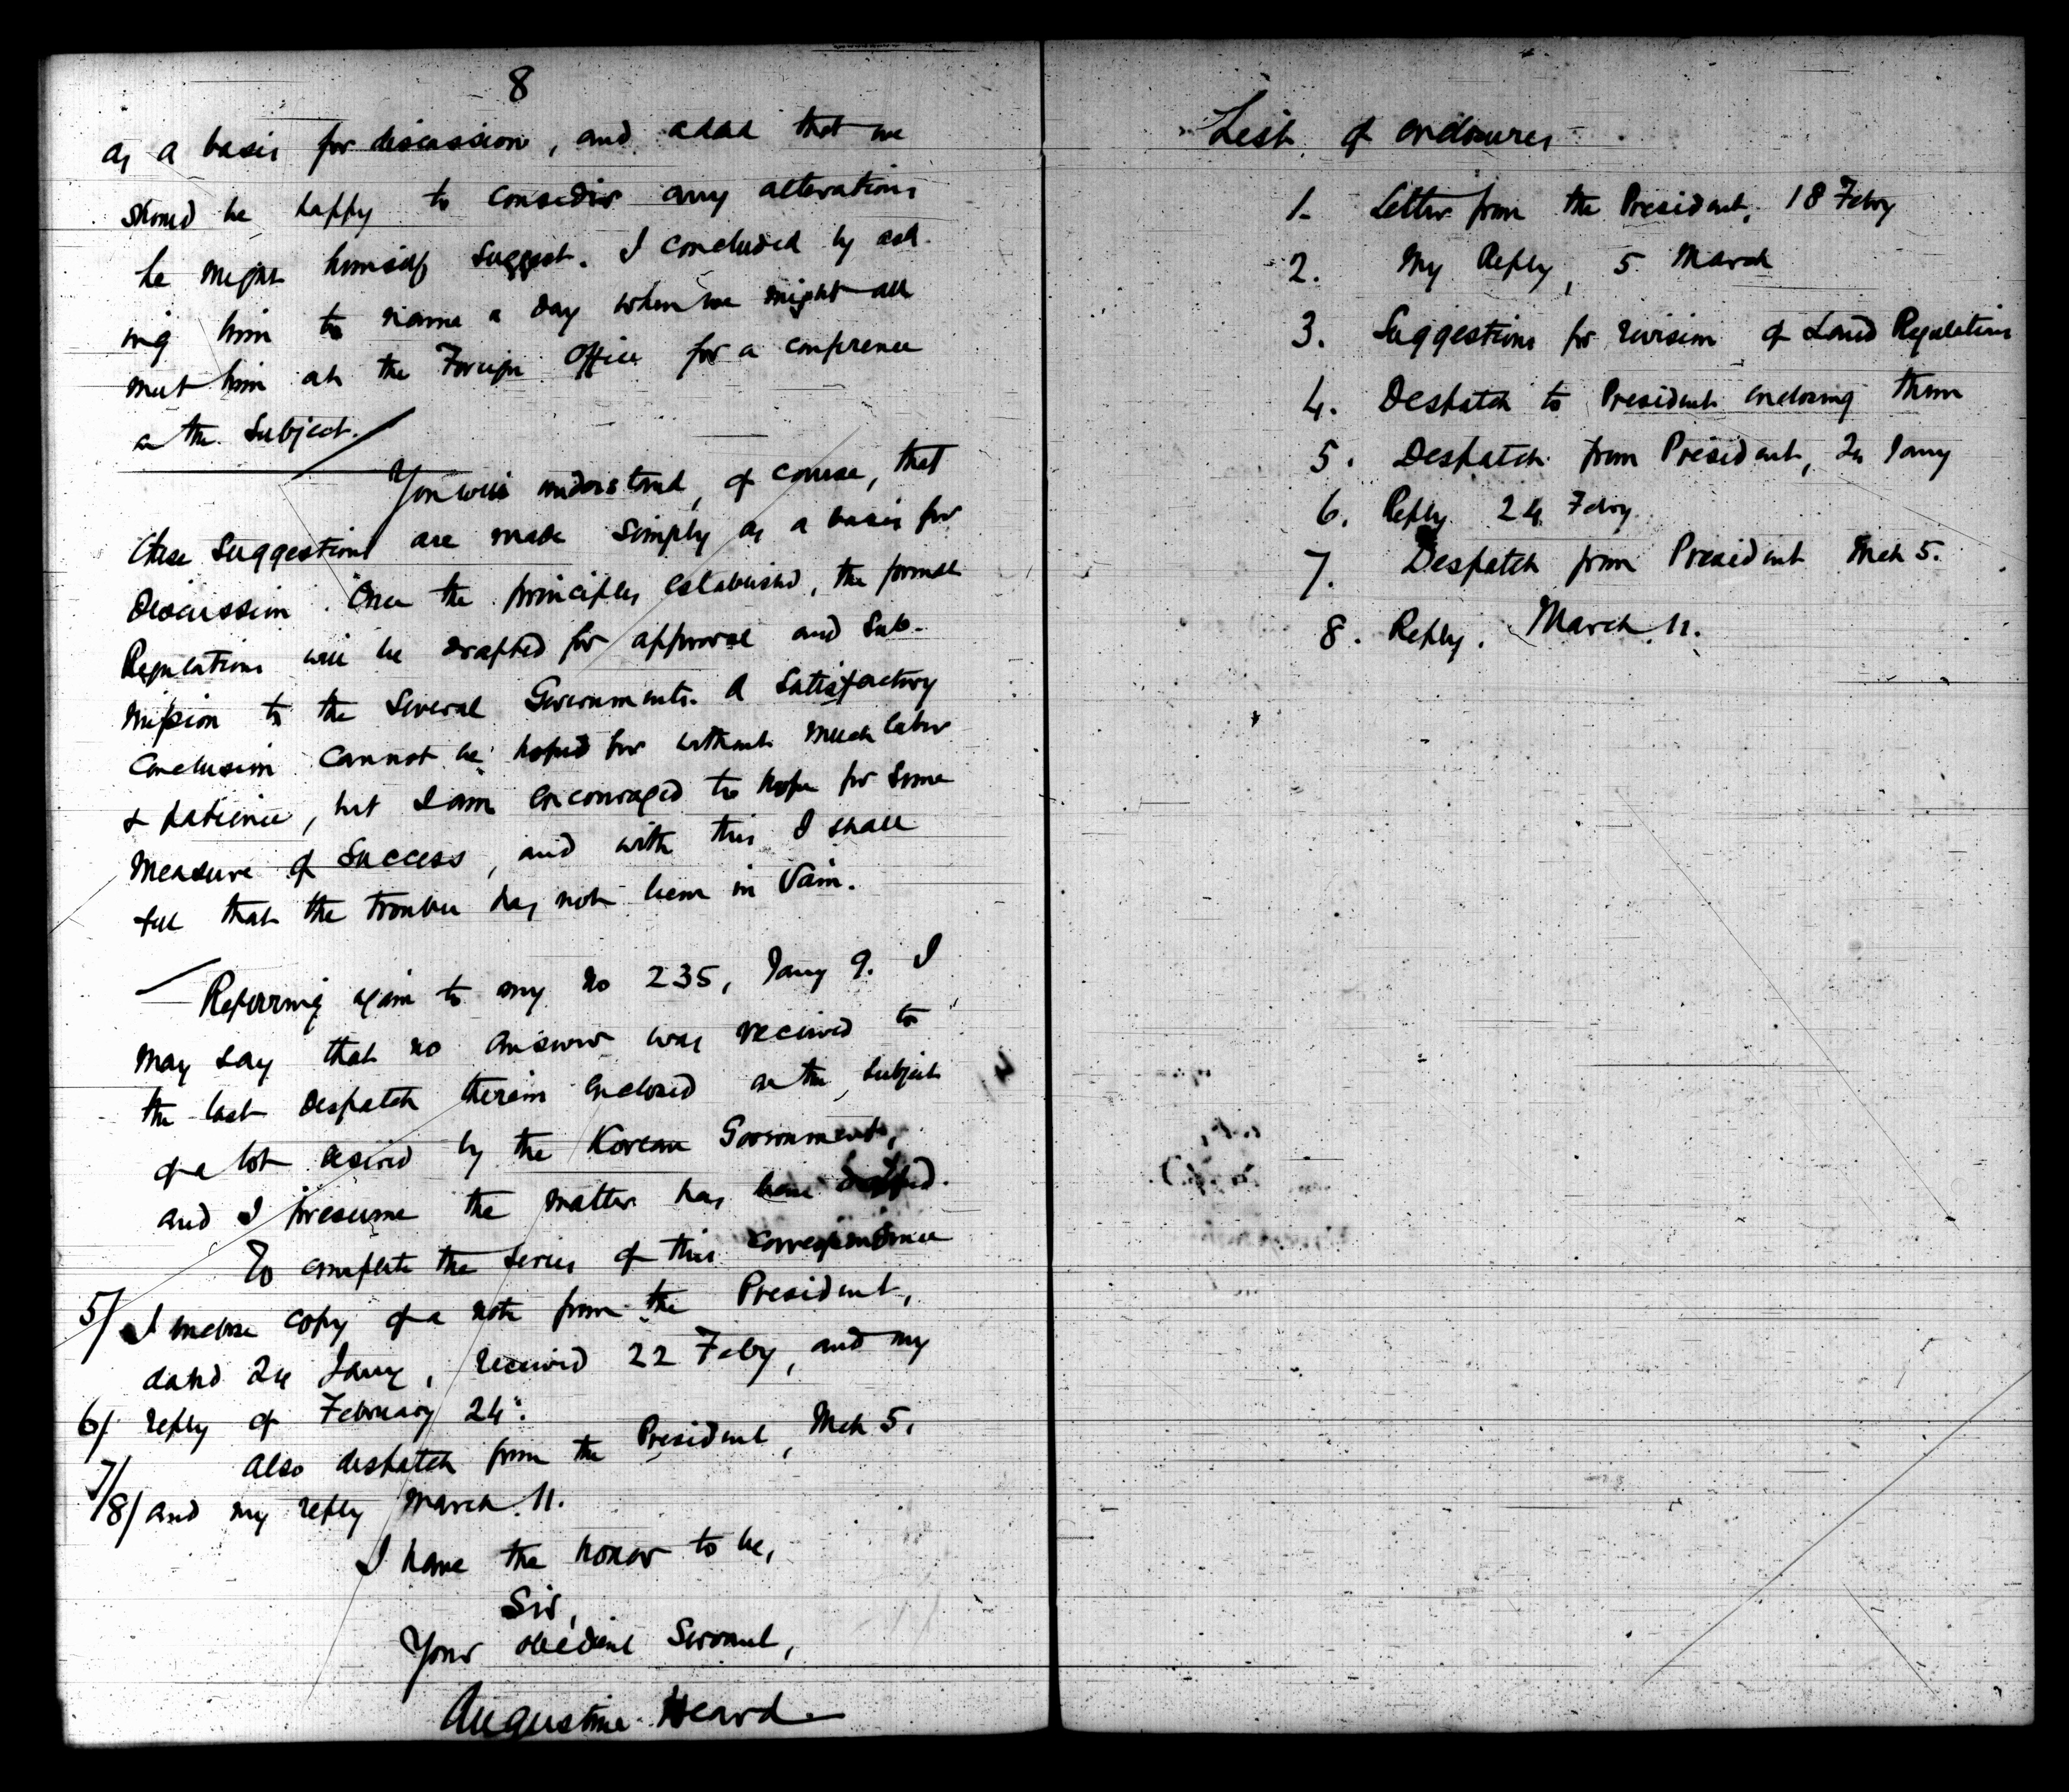 8
as a basis for discussion, and added that we
should be happy to consider any alterations
he might himself suggest. I concluded by ask-
ing him to name a day when we might all
meet him at the Foreign Office for a conference
on the subject.
You will understand, of course, that
these suggestions are made simply as a basis for
discussion. Once the principles established, the formal
Regulations will be drafted for approval and sub-
mission to the several Governments. A satisfactory
conclusion cannot be hoped for without much labor
& patience, but I am encouraged to hope for some
measure of success, and with this I shall
feel that the trouble has not been in vain.
Referring again to my no 235, Jany 9. I
may say that no answer was received to
the last despatch therein enclosed on the subject
of a lot desired by the Korean Government,
and I presume the matter has been dropped.
To complete the series of this correspondence
5/ I enclose copy of a note from the President,
dated 24 Jany, received 22 Feby, and my
6/ reply of February 24".
Also despatch from the President, Mch 5.
7/
8/ and my reply March 11.
I have the honor to be,
Sir,
Your obedient Servant,
Augustine Heard
List of enclosures
1. Letter from the President, 18 Febry
2. My Reply, 5 March
3. Suggestions for revision of Land Regulations
4. Despatch to President enclosing them
5. Despatch from President, 24 Jany
6. Reply 24 Febry.
7. Despatch from President Mch 5.
8. Reply. March 11.